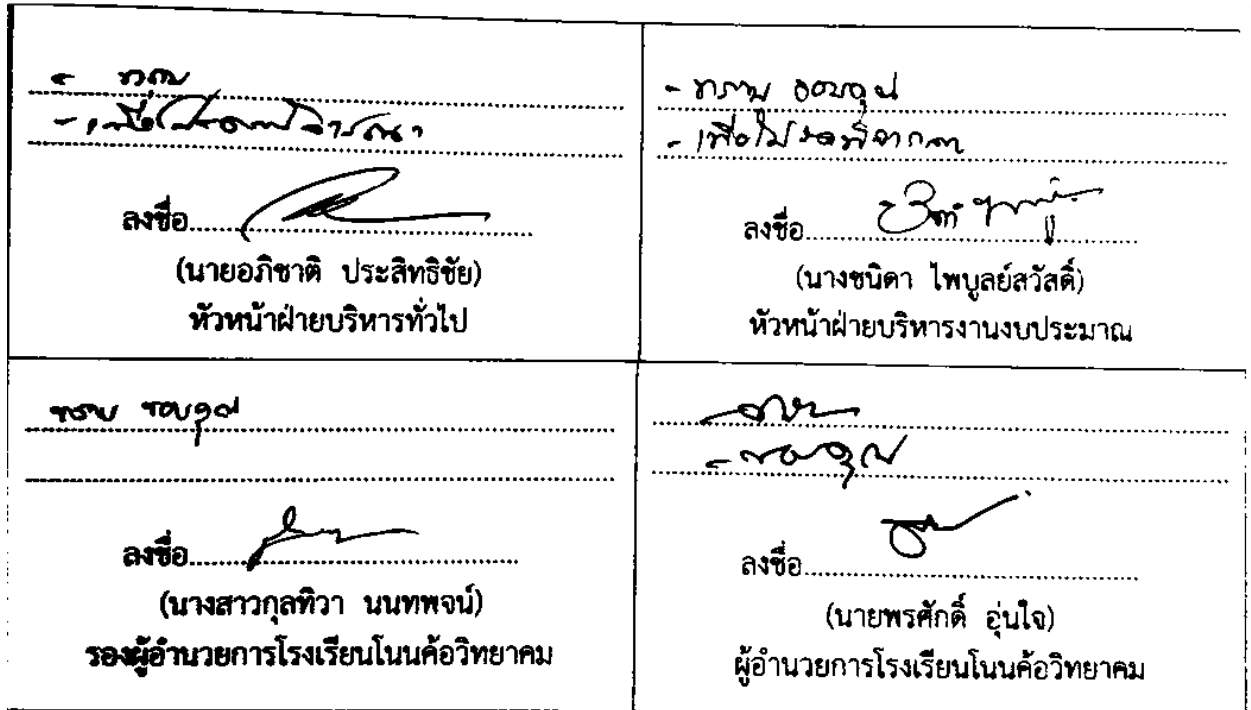 - ทราบ
- เพื่อโปรดพิจารณา
ลงชื่อ
(นายอภิชาติ ประสิทธิชัย)
หัวหน้าฝ่ายบริหารทั่วไป
- ทราบ ขอบคุณ
- เพื่อโปรดพิจารณา
ลงชื่อ
(นางชนิดา ไพบูลย์สวัสดิ์)
หัวหน้าฝ่ายบริหารงานงบประมาณ
ทราบ ขอบคุณ
ลงชื่อ
(นางสาวกุลทิวา นนทพจน์)
รองผู้อำนวยการโรงเรียนโนนค้อวิทยาคม
- ขอบคุณ
ลงชื่อ
(นายพรศักดิ์ อุ่นใจ)
ผู้อำนวยการโรงเรียนโนนค้อวิทยาคม